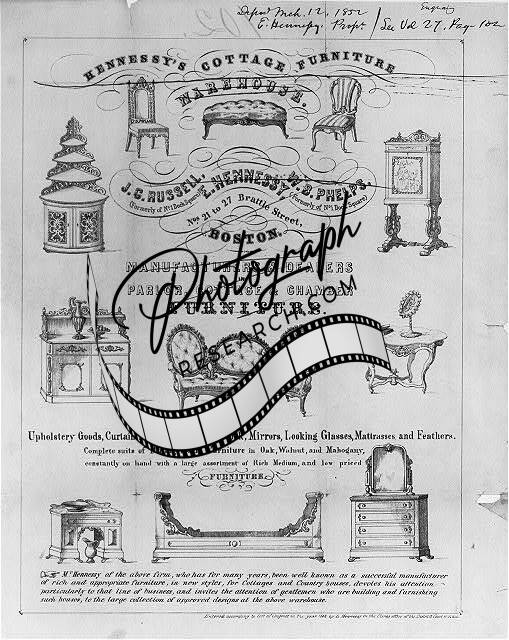 Depos. Mch. 12, 1852
E. Hennessy Propr.
See Vol 27, Page 102
HENNESSY'S COTTAGE FURNITURE
WAREHOUSE.
J.C. RUSSELL, E. HENNESSY, W.B. PHELPS,
(Formerly of No 1 Dock Square) (Formerly of No 1 Dock Square)
Nos 21 to 27 Brattle Street,
BOSTON.
MANUFACTURERS & DEALERS
PARLOR, COTTAGE & CHAMBER
FURNITURE.
Photograph
RESEARCH.COM
Upholstery Goods, Mirrors, Looking Glasses, Mattrasses and Feathers.
Complete suits of Furniture in Oak, Walnut, and Mahogany,
constantly on hand with a large assortment of Rich Medium, and low priced
FURNITURE.
Mr Hennessy of the above firm, who has for many years, been well known as a successful manufacturer
of rich and appropriate furniture, in new styles, for Cottages and Country houses, devotes his attention
particularly to that line of business, and invites the attention of gentlemen who are building and furnishing
such houses, to the large collection of approved designs at the above warehouse.
Entered according to Act of Congress in the year 1852 by E. Hennessy in the Clerks office of the District Court of Mass.